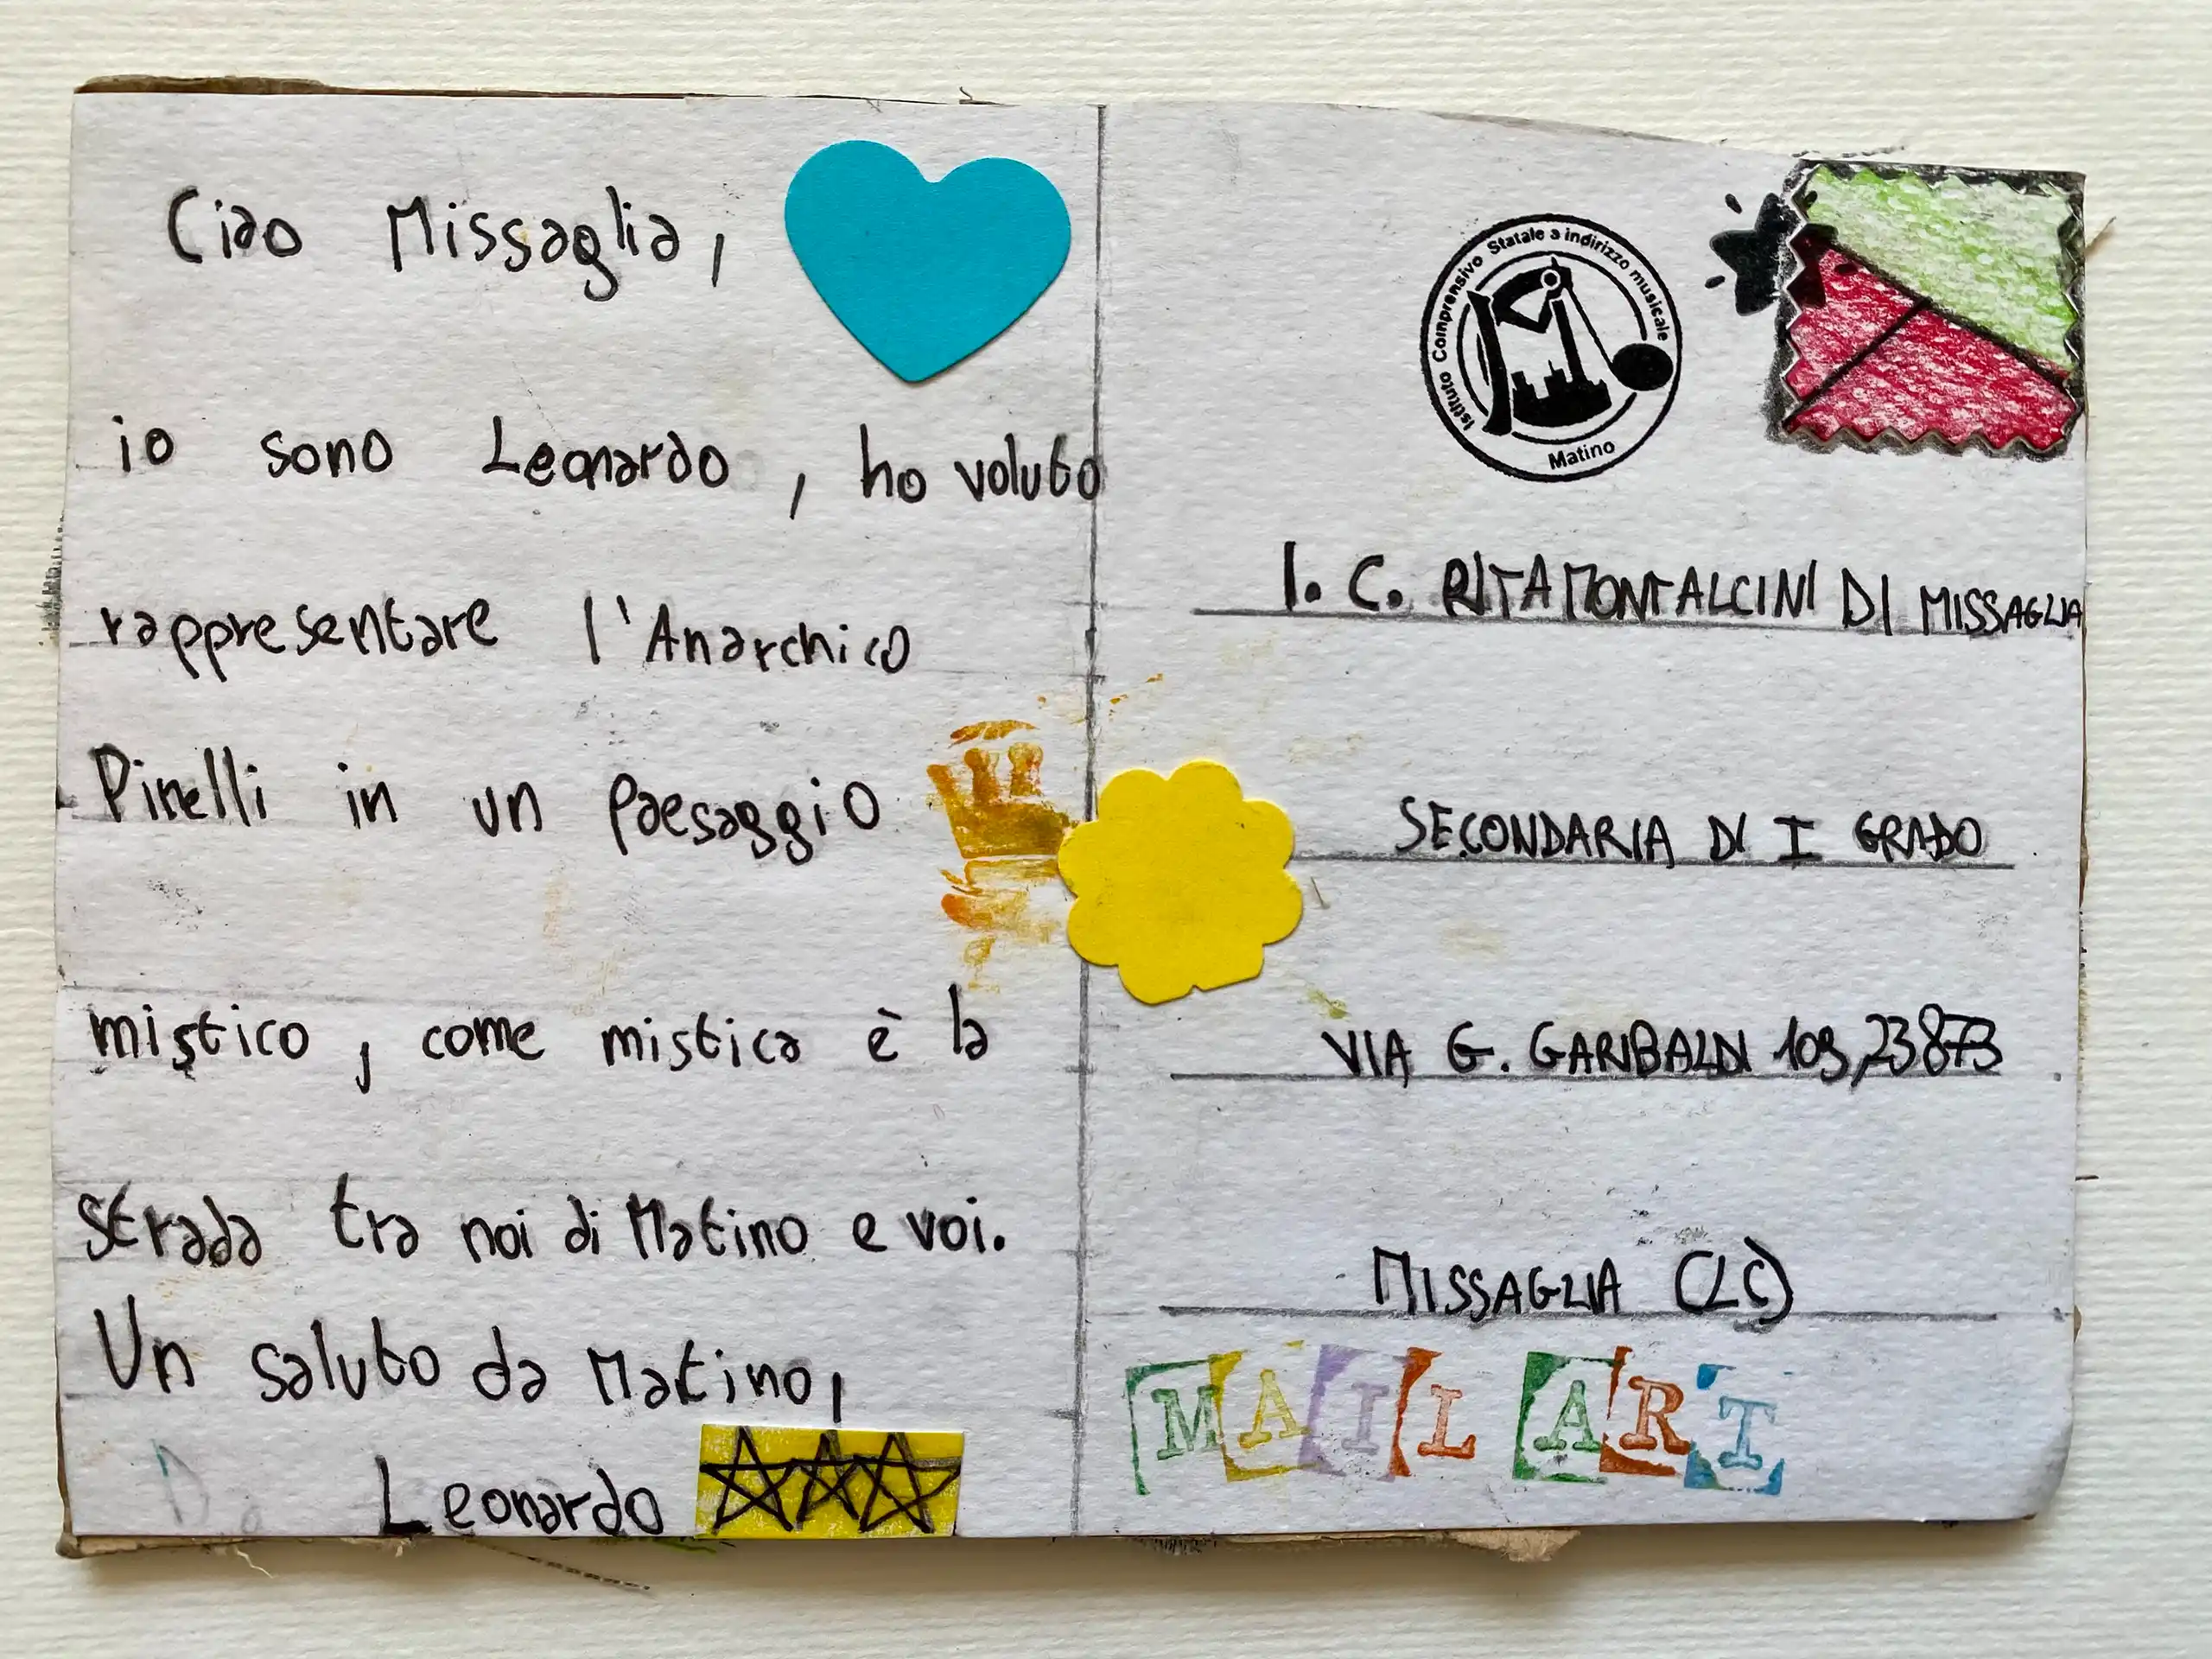 Ciao Missaglia,
io sono Leonardo, ho voluto
rappresentare l'Anarchico
Pinelli in un paesaggio
mistico, come mistica è la
strada tra noi di Matino e voi.
Un saluto da Matino,
Leonardo
Istituto Comprensivo Statale a indirizzo musicale
Matino
I. C. RITA MONTALCINI DI MISSAGLIA
SECONDARIA DI I GRADO
VIA G. GARIBALDI 109, 23873
MISSAGLIA (LC)
MAIL ART